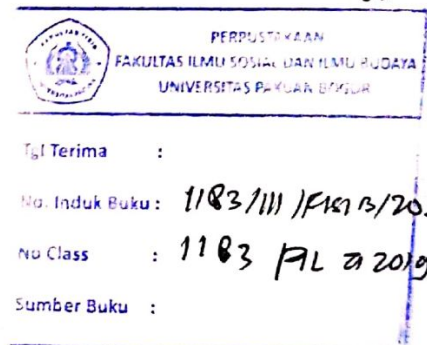 PERPUSTAKAAN
FAKULTAS ILMU SOSIAL DAN ILMU BUDAYA
UNIVERSITAS PAKUAN BOGOR
Tgl Terima :
No. Induk Buku : 1183/III/FISIB/20
No Class : 1183 2019
Sumber Buku :